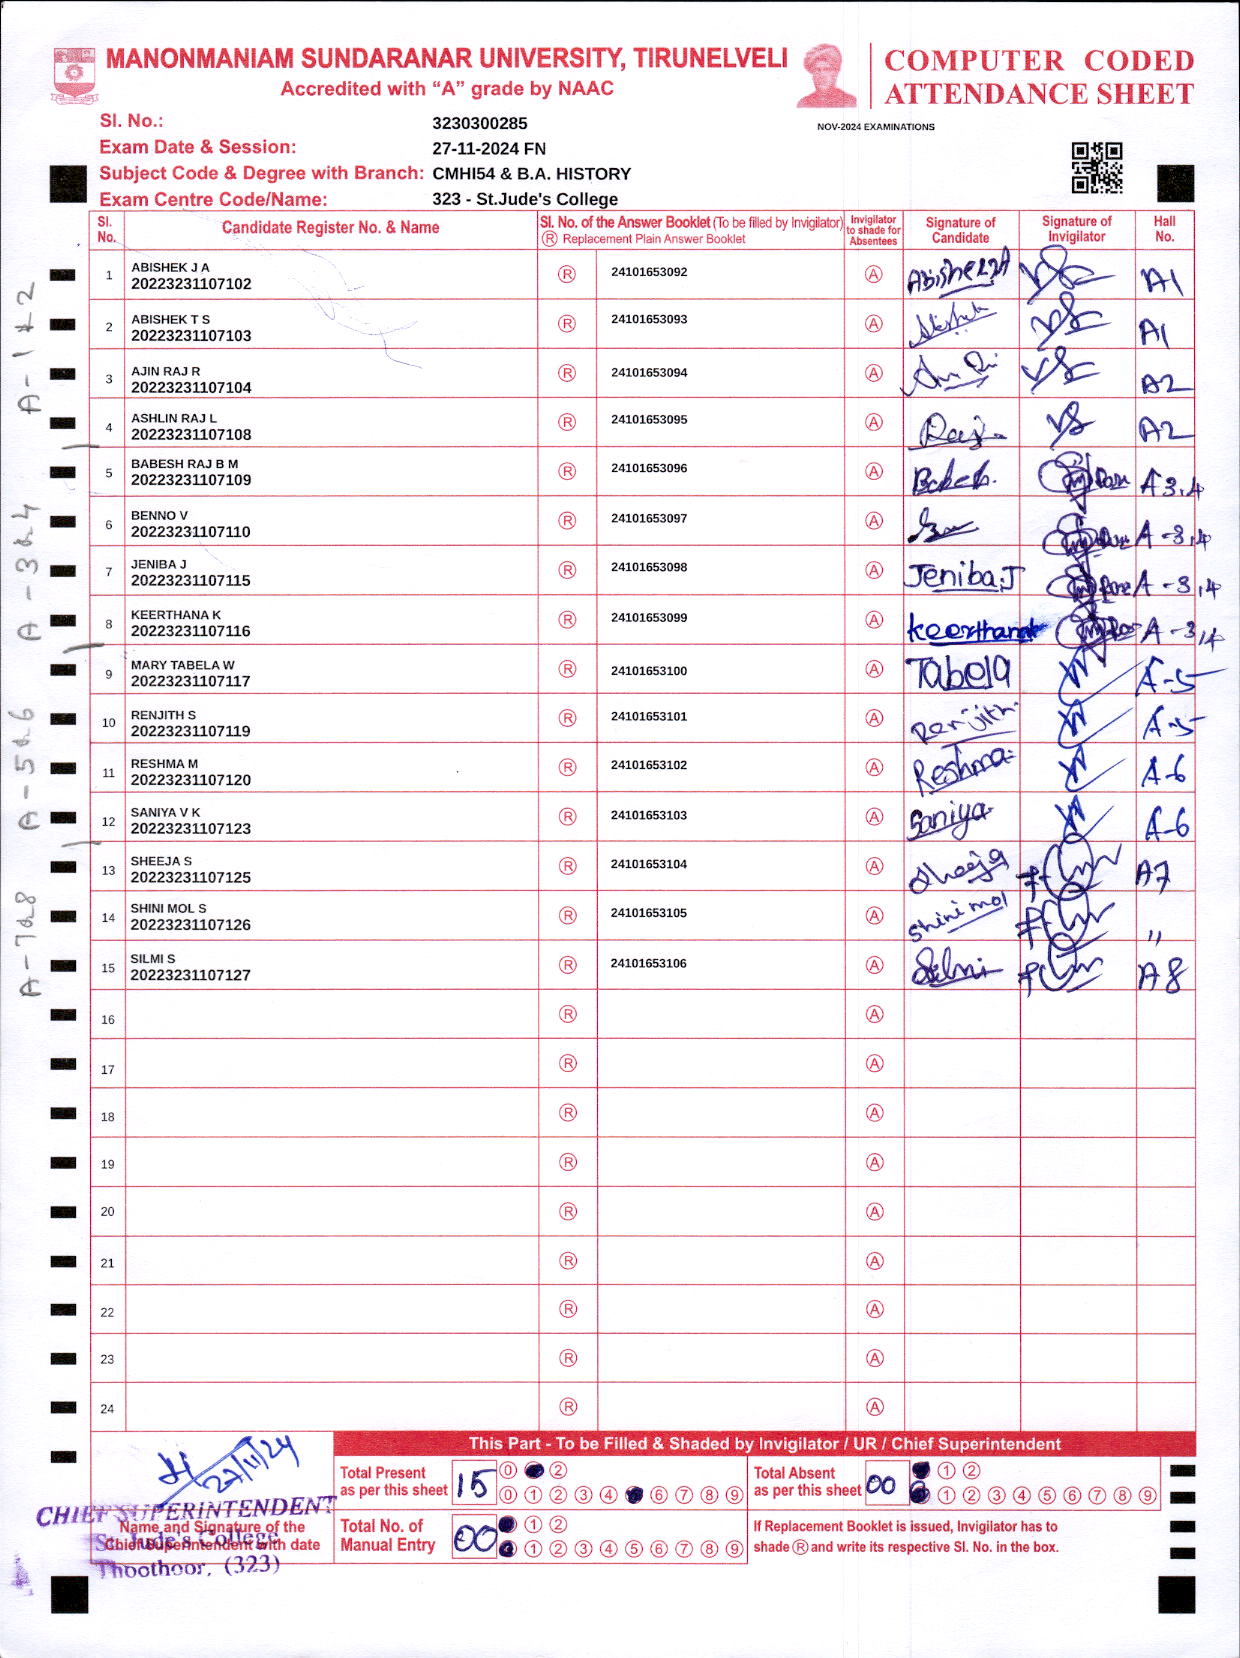 MANONMANIAM SUNDARANAR UNIVERSITY, TIRUNELVELI
Accredited with “A” grade by NAAC
COMPUTER CODED
ATTENDANCE SHEET
NOV-2024 EXAMINATIONS
Sl. No.: 3230300285
Exam Date & Session: 27-11-2024 FN
Subject Code & Degree with Branch: CMHI54 & B.A. HISTORY
Exam Centre Code/Name: 323 - St.Jude's College
Sl. No. Candidate Register No. & Name Sl. No. of the Answer Booklet (To be filled by Invigilator) Ⓡ Replacement Plain Answer Booklet Invigilator to shade for Absentees Signature of Candidate Signature of Invigilator Hall No.
1 ABISHEK J A 20223231107102 Ⓡ 24101653092 Ⓐ A1
2 ABISHEK T S 20223231107103 Ⓡ 24101653093 Ⓐ A1
3 AJIN RAJ R 20223231107104 Ⓡ 24101653094 Ⓐ A2
4 ASHLIN RAJ L 20223231107108 Ⓡ 24101653095 Ⓐ A2
5 BABESH RAJ B M 20223231107109 Ⓡ 24101653096 Ⓐ A 3,4
6 BENNO V 20223231107110 Ⓡ 24101653097 Ⓐ A -3,4
7 JENIBA J 20223231107115 Ⓡ 24101653098 Ⓐ Jeniba.J A -3,4
8 KEERTHANA K 20223231107116 Ⓡ 24101653099 Ⓐ keerthana A -3,4
9 MARY TABELA W 20223231107117 Ⓡ 24101653100 Ⓐ Tabela A-5
10 RENJITH S 20223231107119 Ⓡ 24101653101 Ⓐ Renjith A-5
11 RESHMA M 20223231107120 Ⓡ 24101653102 Ⓐ Reshma A-6
12 SANIYA V K 20223231107123 Ⓡ 24101653103 Ⓐ Saniya A-6
13 SHEEJA S 20223231107125 Ⓡ 24101653104 Ⓐ Sheeja A7
14 SHINI MOL S 20223231107126 Ⓡ 24101653105 Ⓐ shini mol "
15 SILMI S 20223231107127 Ⓡ 24101653106 Ⓐ Silmi A8
16 Ⓡ Ⓐ
17 Ⓡ Ⓐ
18 Ⓡ Ⓐ
19 Ⓡ Ⓐ
20 Ⓡ Ⓐ
21 Ⓡ Ⓐ
22 Ⓡ Ⓐ
23 Ⓡ Ⓐ
24 Ⓡ Ⓐ
27/11/24
CHIEF SUPERINTENDENT
St. Jude's College
Thoothoor, (323)
Name and Signature of the
Chief Superintendent with date
This Part - To be Filled & Shaded by Invigilator / UR / Chief Superintendent
Total Present as per this sheet 15 0 2
0 1 2 3 4 6 7 8 9
Total Absent as per this sheet 00 1 2
1 2 3 4 5 6 7 8 9
Total No. of Manual Entry 00 1 2
1 2 3 4 5 6 7 8 9
If Replacement Booklet is issued, Invigilator has to
shade Ⓡ and write its respective Sl. No. in the box.